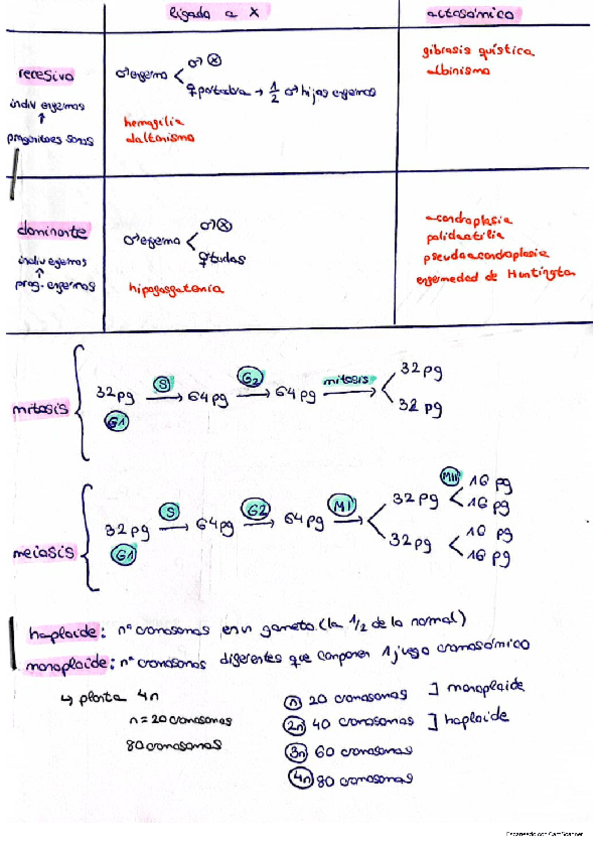 ligado a X
autosómico
recesivo
indiv enfermos
↑
progenitores sanos
♂ enfermo < ♂ ⊗
♀ portadora → 1/2 ♂ hijos enfermos
hemofilia
daltonismo
fibrosis quística
albinismo
dominante
indiv enfermos
↑
prog. enfermos
♂ enfermo < ♂ ⊗
♀ todas
hipofosfatemia
acondroplasia
polidactilia
pseudoacondroplasia
enfermedad de Huntington
mitosis
32 pg → S → 64 pg → G2 → 64 pg → mitosis < 32 pg
32 pg
G1
meiosis
32 pg → S → 64 pg → G2 → 64 pg → MI < 32 pg < MII 16 pg
16 pg
32 pg < 16 pg
16 pg
G1
haploide: nº cromosomas en un gameto (la 1/2 de lo normal)
monoploide: nº cromosomas diferentes que componen 1 juego cromosómico
↳ planta 4n
n = 20 cromosomas
80 cromosomas
n 20 cromosomas ] monoploide
2n 40 cromosomas ] haploide
3n 60 cromosomas
4n 80 cromosomas
Escaneado con CamScanner